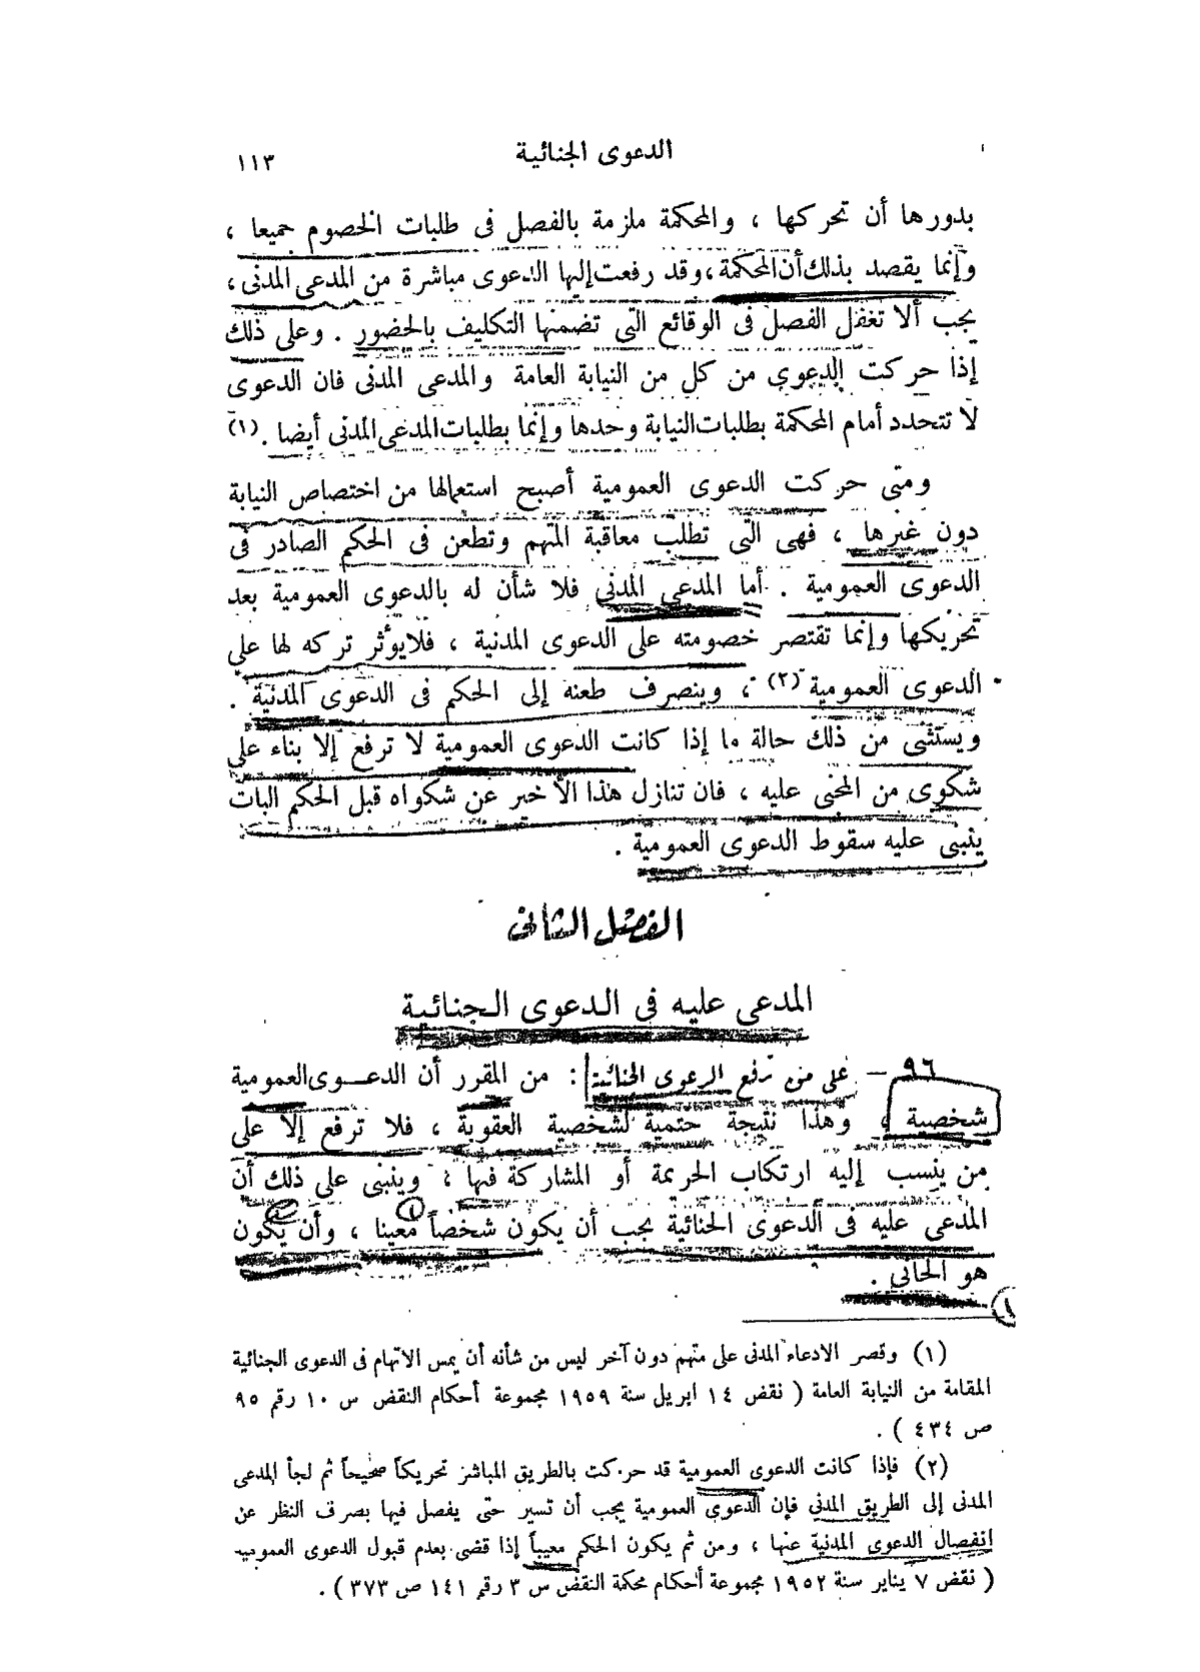 الدعوى الجنائية ١١٣
بدورها أن تحركها ، والمحكمة ملزمة بالفصل فى طلبات الخصوم جميعا ،
وإنما يقصد بذلك أن المحكمة ، وقد رفعت إليها الدعوى مباشرة من المدعى المدنى ،
يجب ألا تغفل الفصل فى الوقائع التى تضمنها التكليف بالحضور . وعلى ذلك
إذا حركت الدعوى من كل من النيابة العامة والمدعى المدنى فان الدعوى
لا تتحدد أمام المحكمة بطلبات النيابة وحدها وإنما بطلبات المدعى المدنى أيضا .(١)
ومتى حركت الدعوى العمومية أصبح استعمالها من اختصاص النيابة
دون غيرها ، فهى التى تطلب معاقبة المتهم وتطعن فى الحكم الصادر فى
الدعوى العمومية . أما المدعى المدنى فلا شأن له بالدعوى العمومية بعد
تحريكها وإنما تقتصر خصومته على الدعوى المدنية ، فلا يؤثر تركه لها على
الدعوى العمومية (٢) ، وينصرف طعنه إلى الحكم فى الدعوى المدنية .
ويستثنى من ذلك حالة ما إذا كانت الدعوى العمومية لا ترفع إلا بناء على
شكوى من المجنى عليه ، فان تنازل هذا الأخير عن شكواه قبل الحكم البات
ينبنى عليه سقوط الدعوى العمومية .
الفصل الثانى
المدعى عليه فى الدعوى الجنائية
٩٦ – على من ترفع الدعوى الجنائية : من المقرر أن الدعــوى العمومية
شخصية ، وهذا نتيجة حتمية لشخصية العقوبة ، فلا ترفع إلا على
من ينسب إليه ارتكاب الجريمة أو المشاركة فيها ، وينبنى على ذلك أن
المدعى عليه فى الدعوى الجنائية يجب أن يكون شخصاً معينا ، وأن يكون
هو الجانى .
(١) وقصر الادعاء المدنى على متهم دون آخر ليس من شأنه أن يمس الاتهام فى الدعوى الجنائية
المقامة من النيابة العامة ( نقض ١٤ ابريل سنة ١٩٥٩ مجموعة أحكام النقض س ١٠ رقم ٩٥
ص ٤٣٤ ) .
(٢) فإذا كانت الدعوى العمومية قد حركت بالطريق المباشر تحريكاً صحيحاً ثم لجأ المدعى
المدنى إلى الطريق المدنى فإن الدعوى العمومية يجب أن تسير حتى يفصل فيها بصرف النظر عن
انفصال الدعوى المدنية عنها ، ومن ثم يكون الحكم معيباً إذا قضى بعدم قبول الدعوى العمومية
( نقض ٧ يناير سنة ١٩٥٢ مجموعة أحكام محكمة النقض س ٣ رقم ١٤١ ص ٣٧٣ ) .